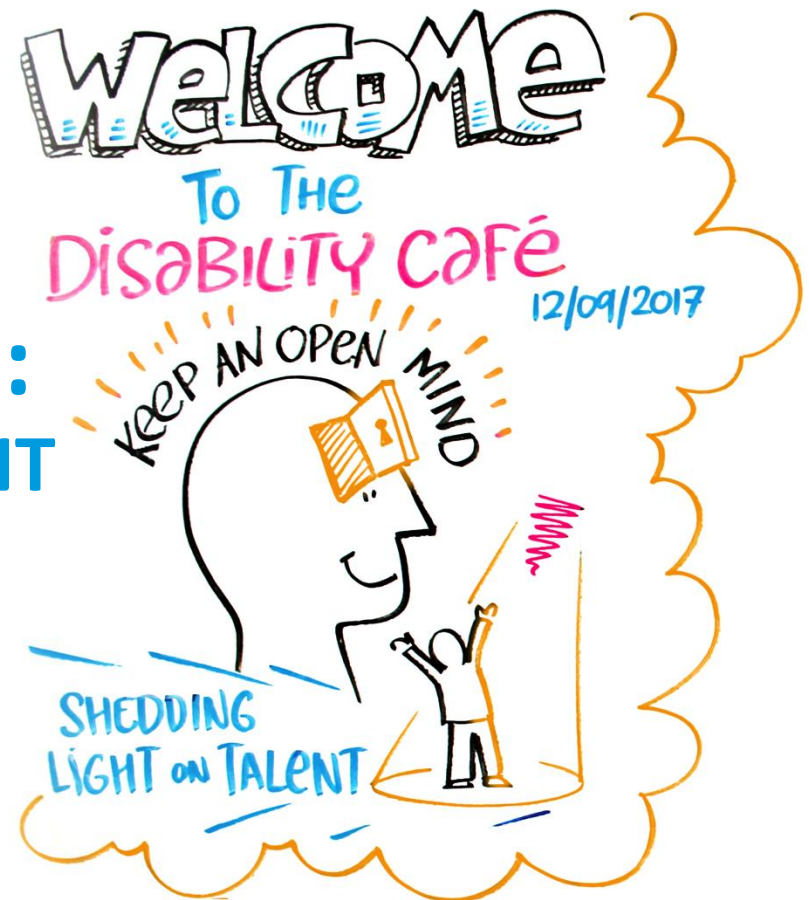 WELCOME
TO THE
DISABILITY CAFÉ
12/09/2017
KEEP AN OPEN MIND
:
IT
SHEDDING
LIGHT ON TALENT